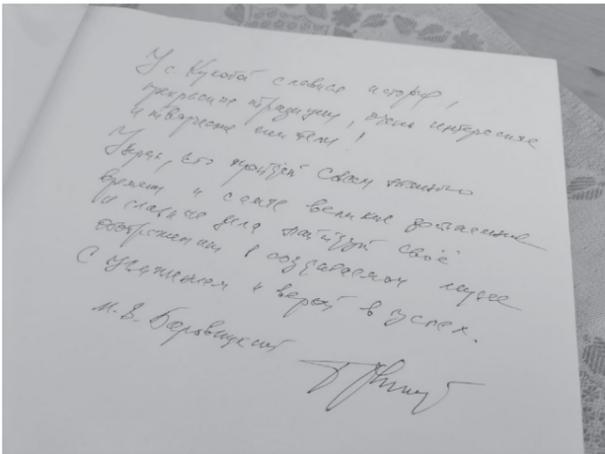 У с. Кукобой славная история,
прекрасные традиции, очень интересные
и творческие жители!
Уверен, что пройдёт совсем немного
времени и самые великие достижения
и славные дела найдут своё
отображение в создаваемом музее
С уважением и верой в успех.
М. В. Боровицкий